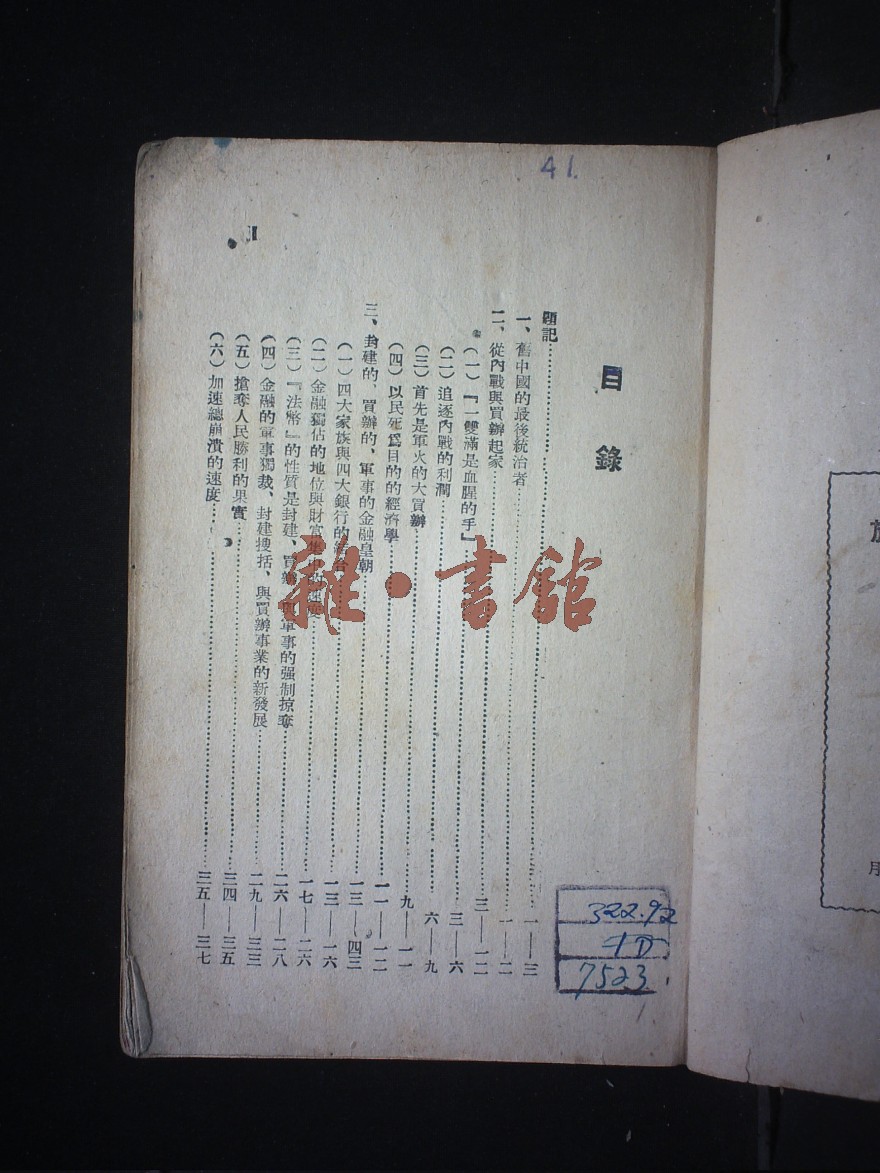 目錄
題記……一——三
一、舊中國的最後統治者……一——二
二、從內戰與買辦起家……三——一二
（一）『一雙滿是血腥的手』……三——六
（二）追逐內戰的利潤……六——九
（三）首先是軍火的大買辦……九——一一
（四）以民死爲目的的經濟學……一一——一二
三、封建的、買辦的、軍事的金融皇朝……一三——四三
（一）四大家族與四大銀行的結合……一三——一六
（二）金融獨佔的地位與財富集中的速度……一七——二六
（三）『法幣』的性質是封建、買辦、與軍事的强制掠奪……二六——二八
（四）金融的軍事獨裁、封建搜括、與買辦事業的新發展……二九——三三
（五）搶奪人民勝利的果實……三四——三五
（六）加速總崩潰的速度……三五——三七
II
41.
322.92
7523
雜·書館